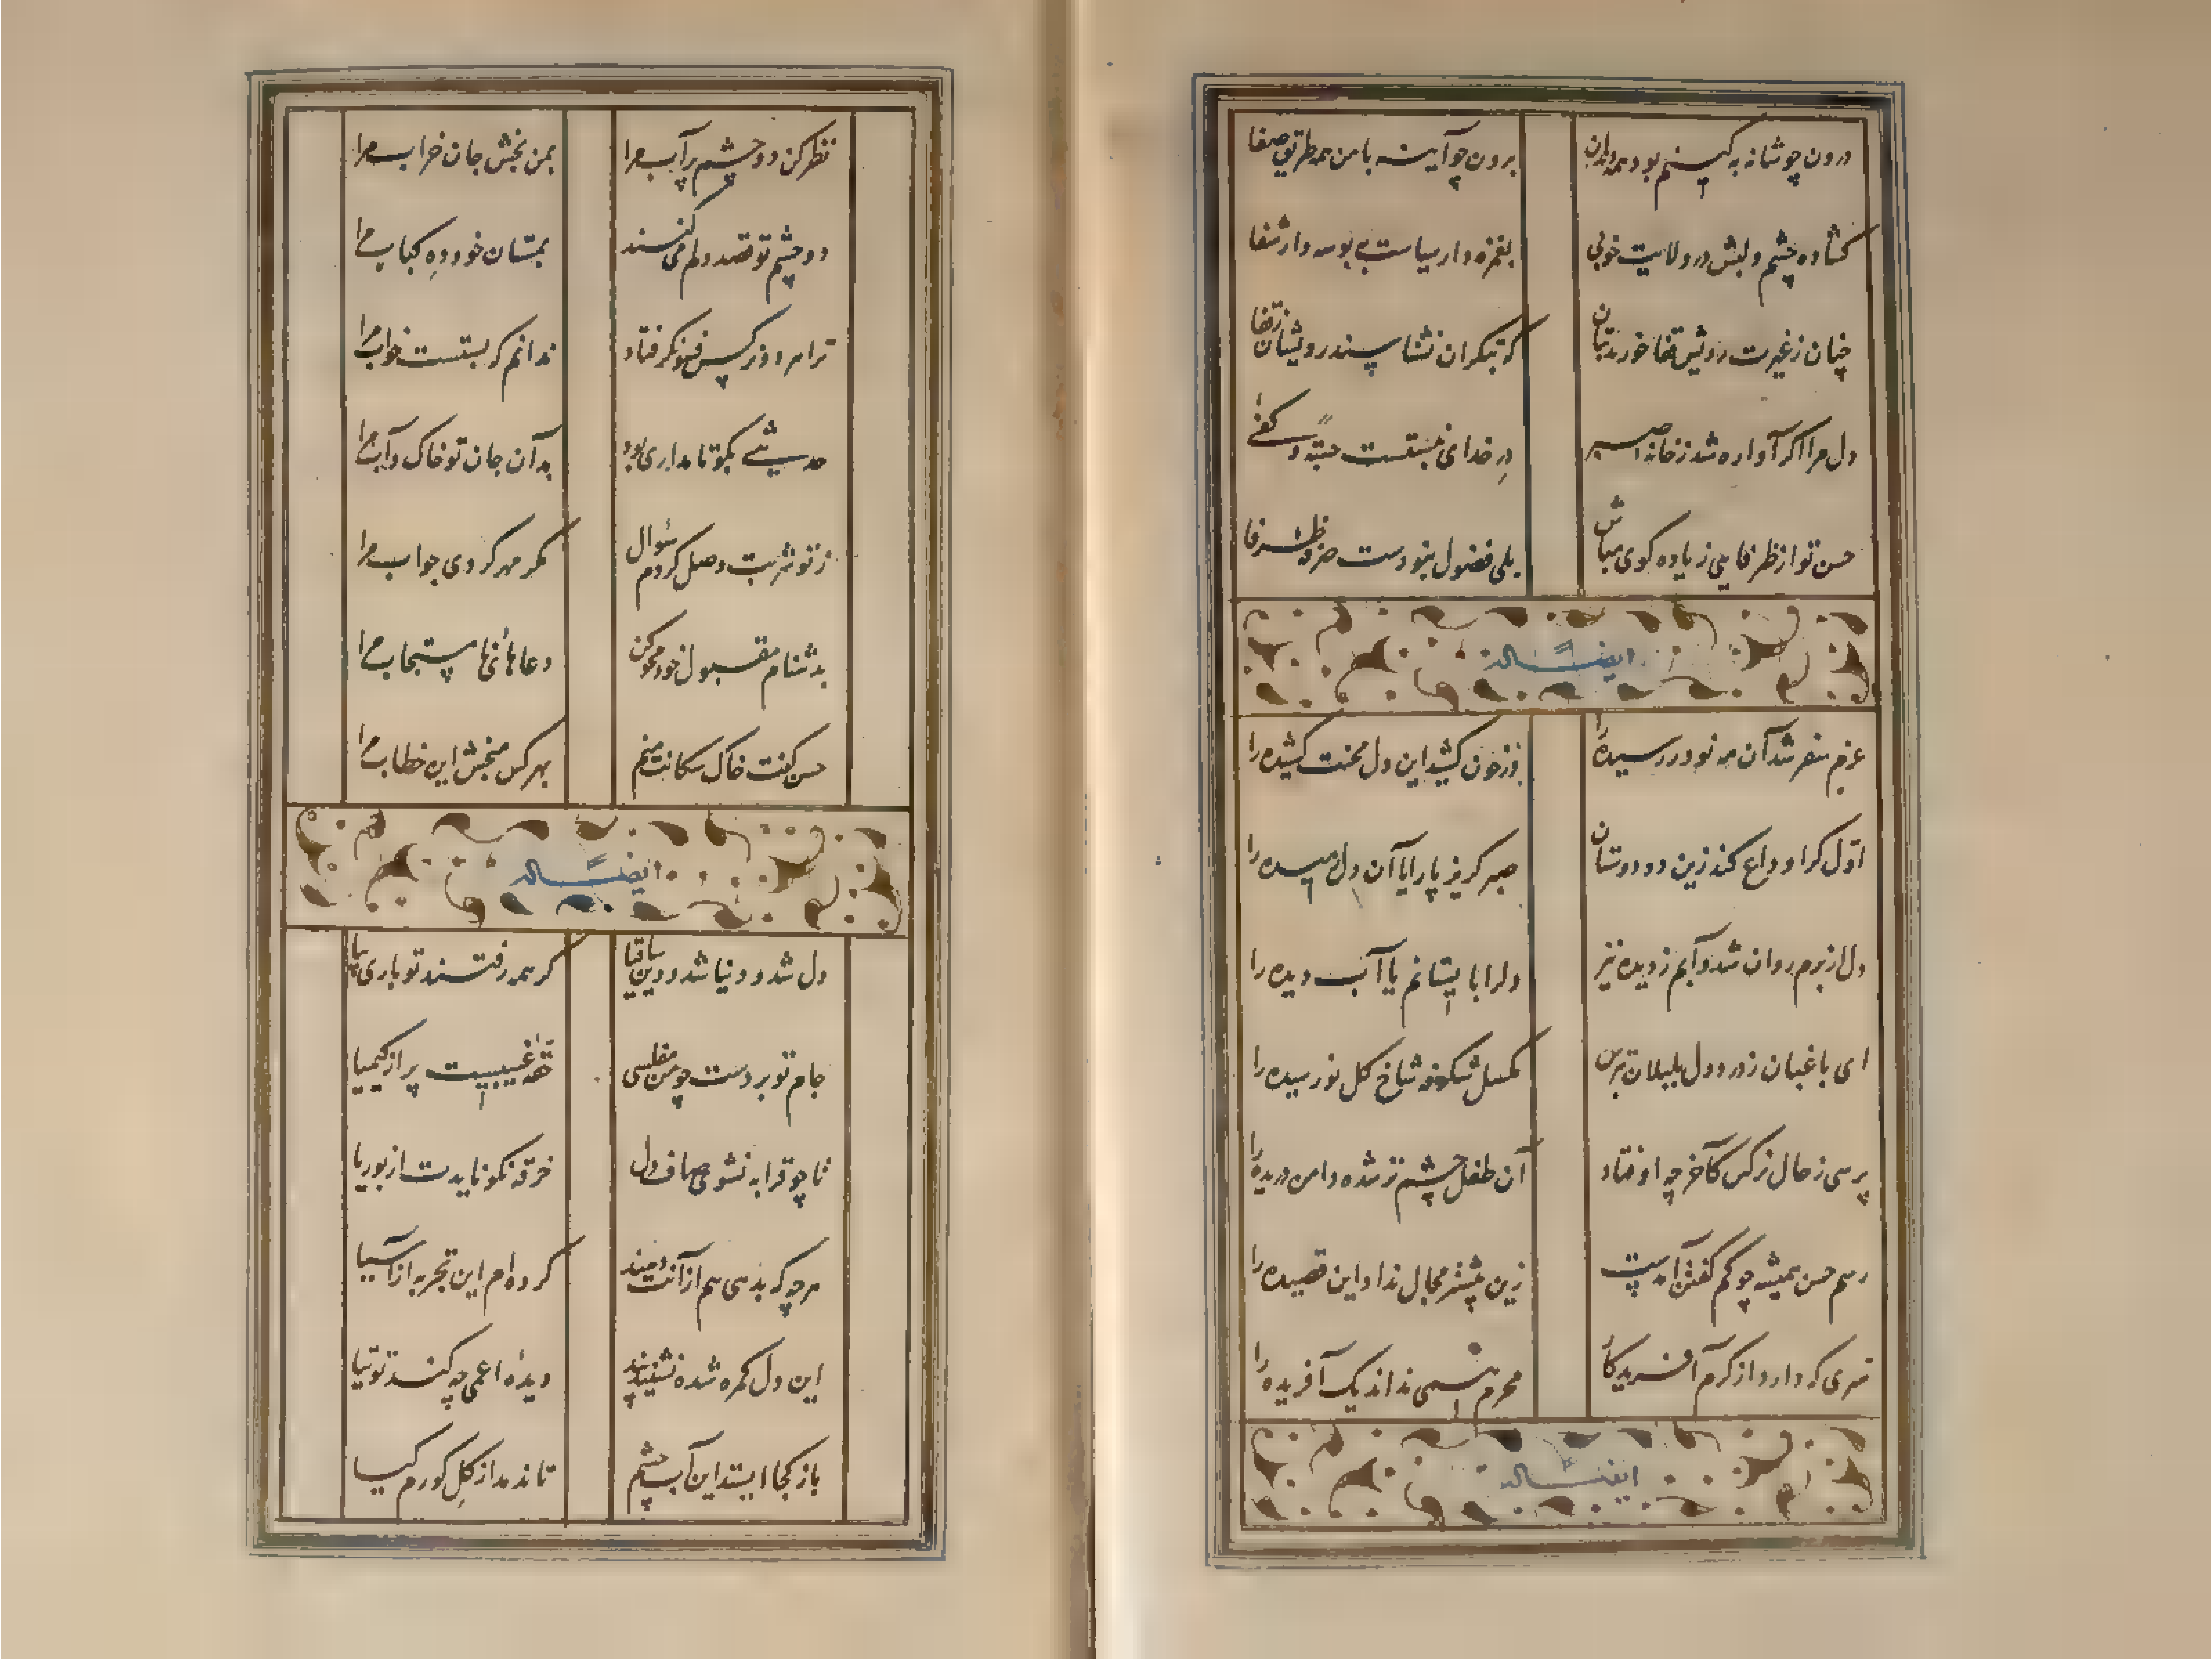 درون چو شانه به کینم بود همه دندان
برون چو آینه با من همه طریق صفا
کشاده چشم و لبش در ولایت خوبی
بغمزه دار سیاست به بوسه دار شفا
چنان ز غیرت رویش قفا خورند بتان
دل مرا اکر آواره شد ز خانه صبر
در خدای نبستست حسبة و کفی
حسن تو از ظرفایی زیاده کوی مباش
بلی فضول نبودست حرفة ظرفا
ایضاً له
عزم سفر شد آن مه نو در رسیده را
خون کشید این دل محنت کشیده را
اول کرا وداع کند زین دو دوستان
صبر کریز پا را یا آن دل رمیده را
دل از برم روان شد و آبم ز دیده نیز
دل را باایستانم یا آب دیده را
ای باغبان ز درد دل بلبلان بترس
مکسل شکوفه شاخ کل نو رسیده را
پرسی ز حال نرکس کآخر چه اوفتاد
آن طفل چشم تر شده دامن دریده را
رسم حسن همیشه چو کم کفتن آمدست
زین بیشتر مجال نداد این قصیده را
سری که دارد از کرم آفریدکار
محرم همی نداند یک آفریده را
ایضاً له
نظر کن دو چشم پر آب مرا
بمن بخش جان خراب مرا
دو چشم تو قصد دلم می کنند
بمستان خود ده کباب مرا
ترا مرد و نرکس فسونکر فتاد
ندانم که بستست خواب مرا
حدیثی بکو تا مداری بود
بدآن جان تو خاک و آب مرا
ز تو شربت وصل کردم سؤال
مکر مهر کردی جواب مرا
بدشنام مقبول خود محو کن
دعاهای نامستجاب مرا
حسن کفت خاک سکانت منم
بهر کس مبخش این خطاب مرا
ایضاً له
دل شد و دنیا شد و دین ساقیا
کر همه رفتند تو باری بیا
جام تو بر دست چو من مفلسی
حقه غیبیست پر از کیمیا
تا چو قرابه نشوی صاف دل
خرقه نکو نایدت از بوریا
هر چه که بدهی هم از آنت دهند
کرده ام این تجربه از آسیا
این دل کمره شده نشنید پند
دیده اعمی چه کند توتیا
باز کجا ایستد این آب چشم
تا ندمد از کل کورم کیا